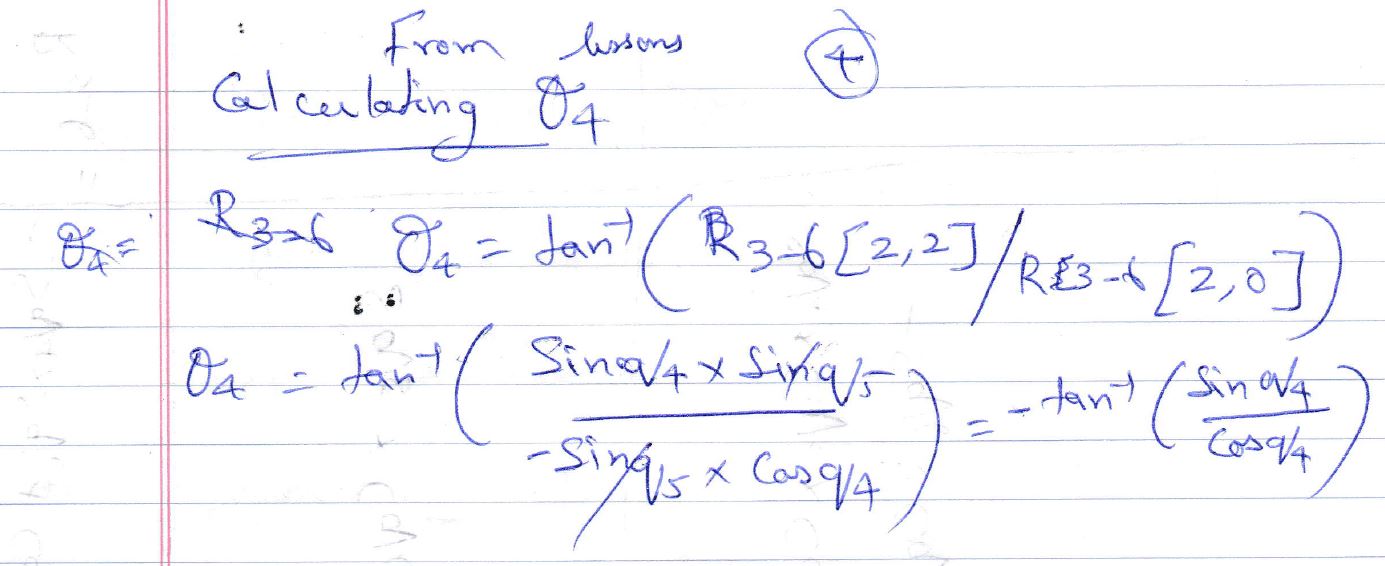 From lessons ④
Calculating θ4
θ4 = R3-6 θ4 = tan⁻¹ ( R3-6[2,2] / R3-6[2,0] )
∴ θ4 = tan⁻¹ ( Sinq4 x Sinq5 / -Sinq5 x Cosq4 ) = - tan⁻¹ ( Sinq4 / Cosq4 )